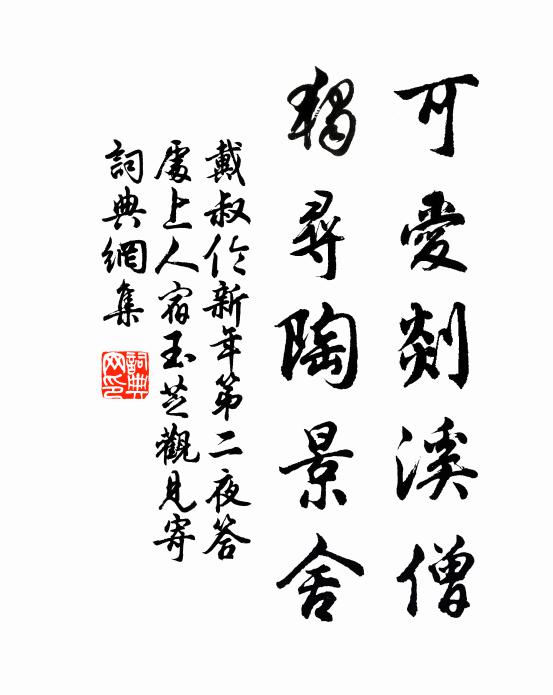 可愛剡溪僧
獨尋陶景舍
戴叔伦新年第二夜答
處上人宿玉芝觀見寄
詞典網集
詞典
网印